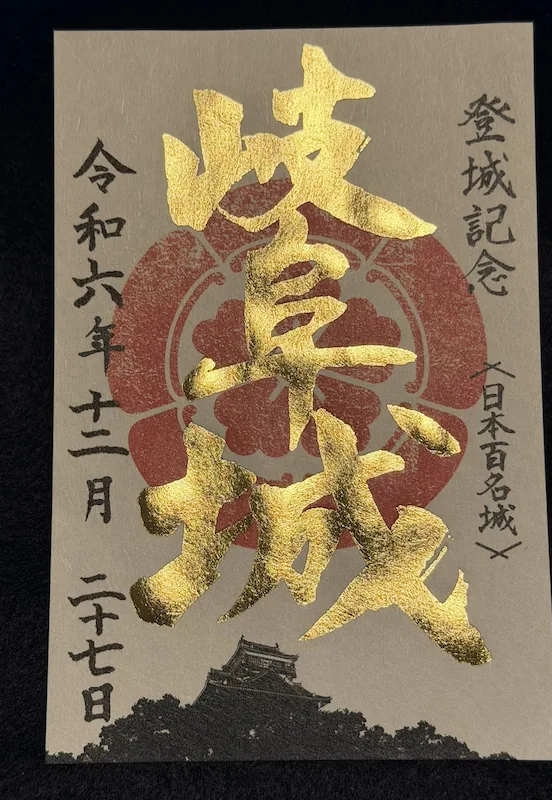 登城記念
〈日本百名城〉
岐阜城
令和六年十二月二十七日